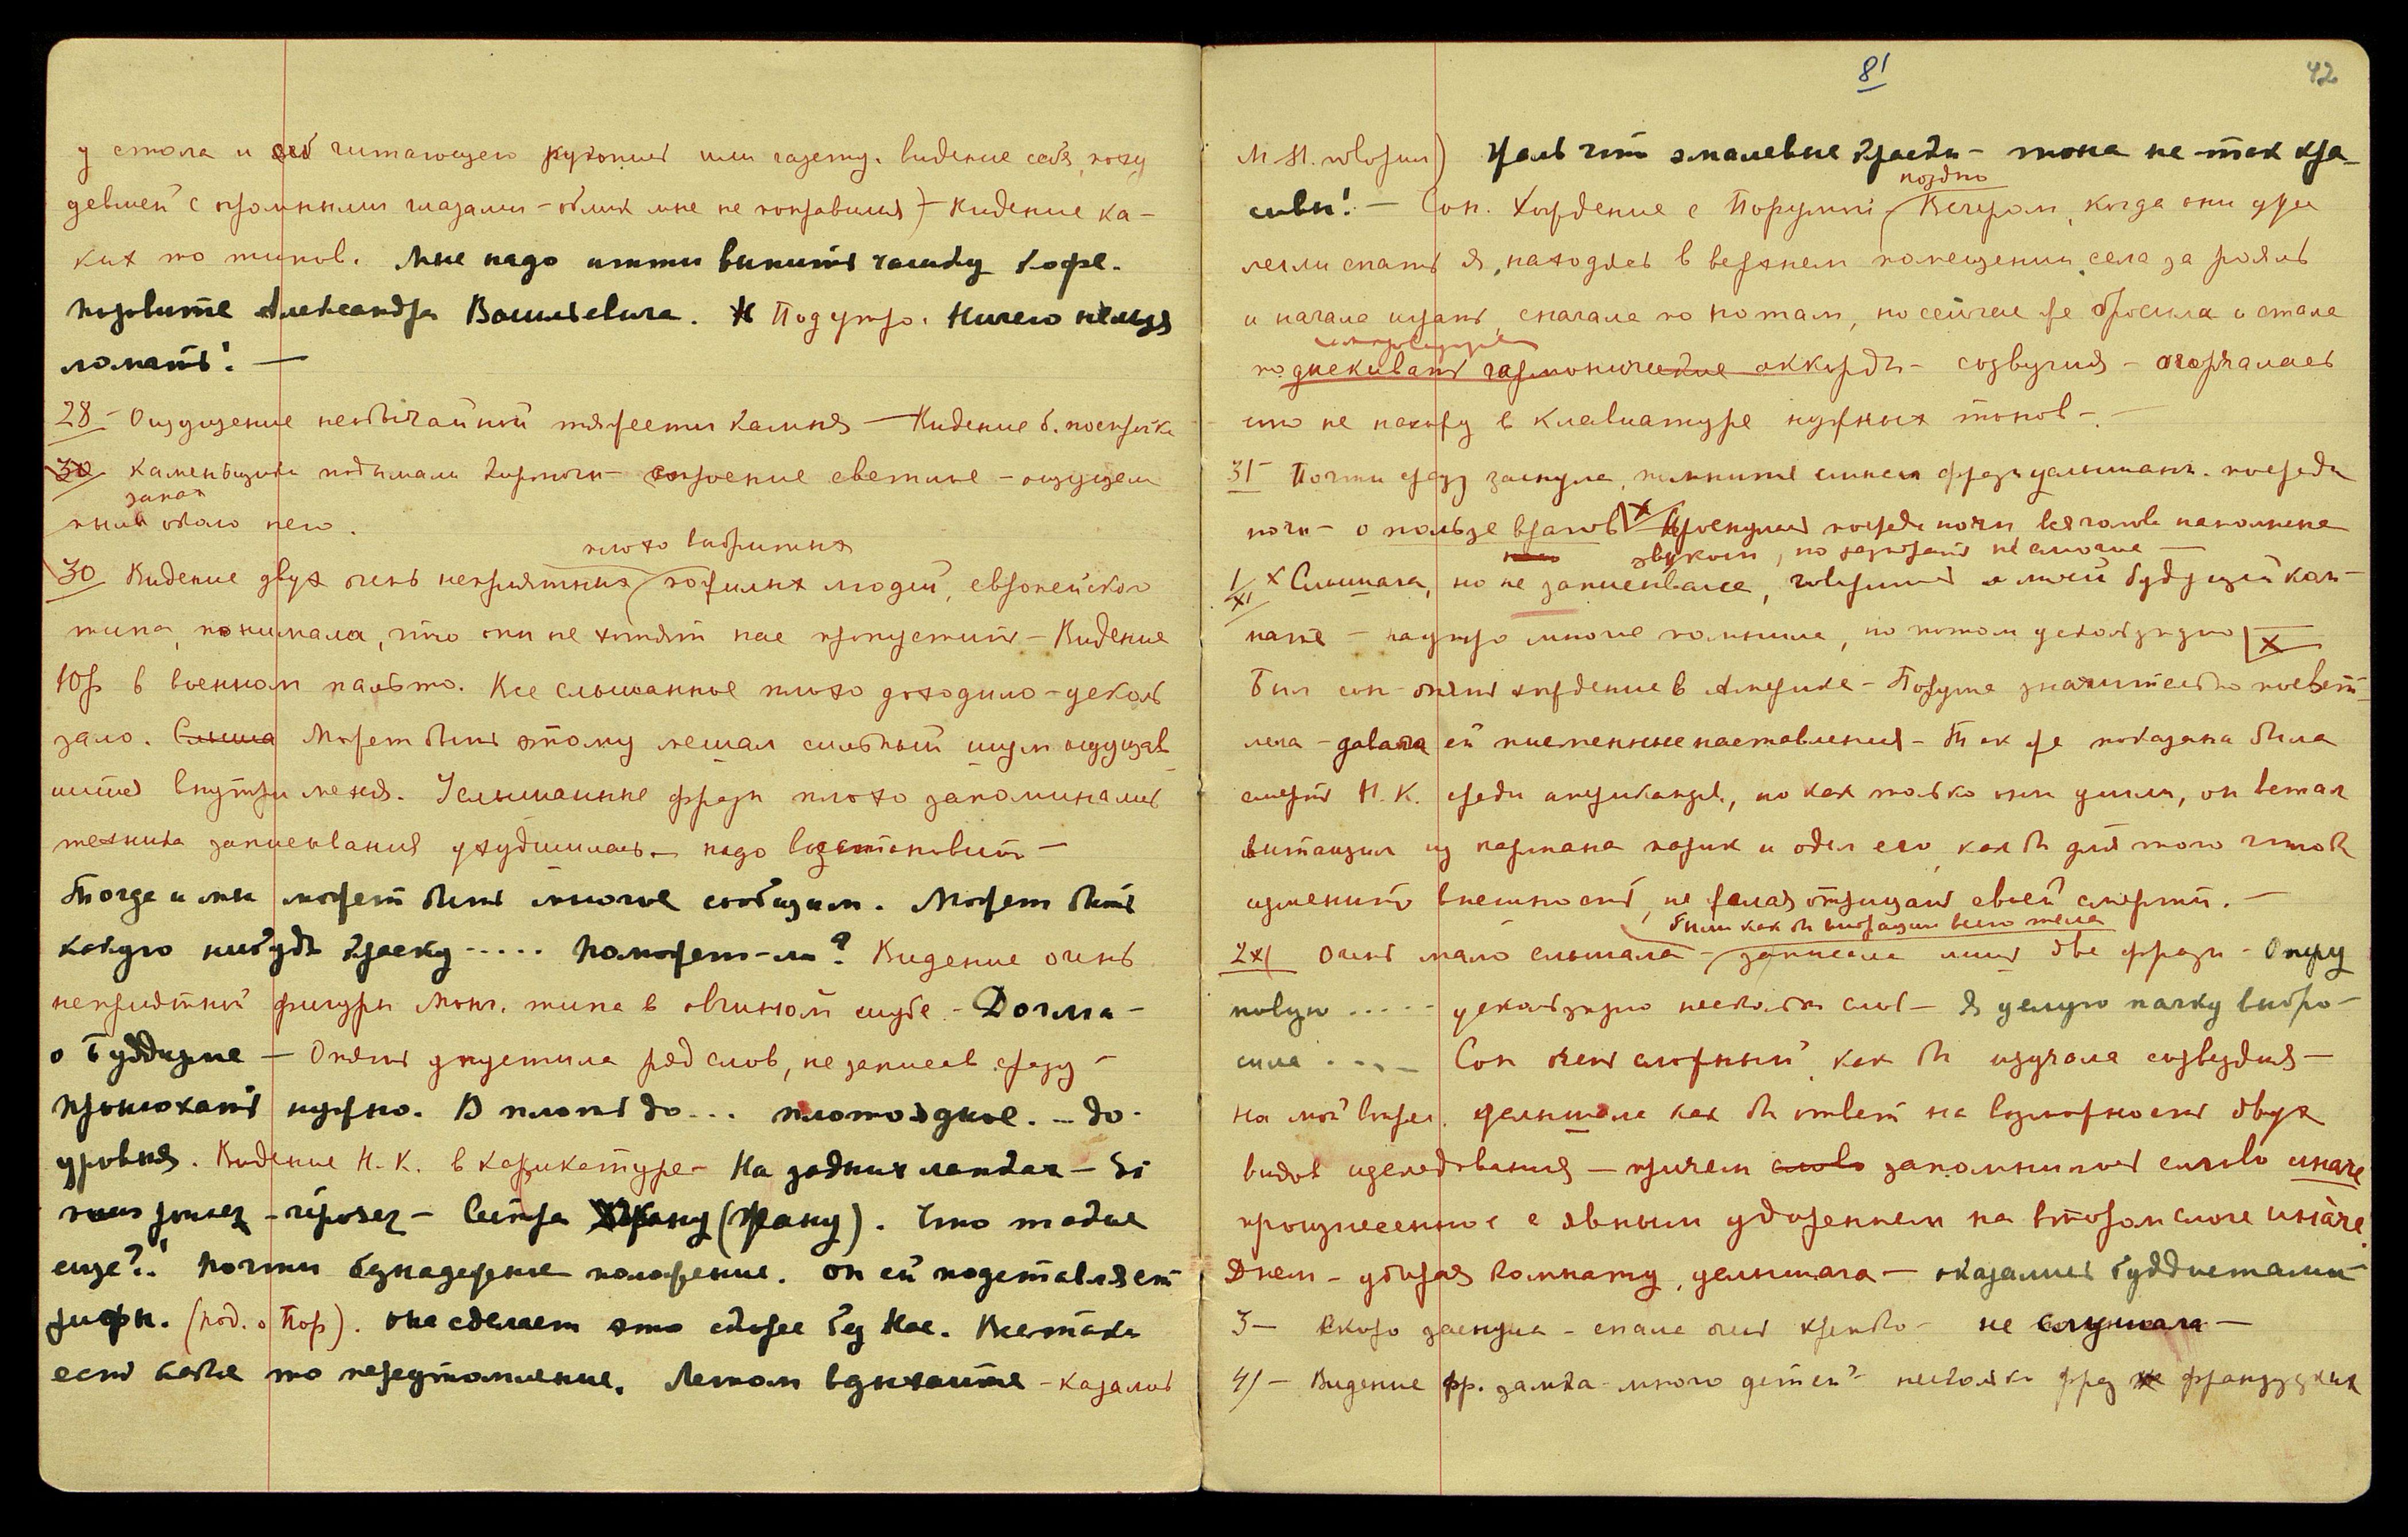 у стола и его читающего рукопись или газету. Видение себя, поху
девшей с огромными глазами – облик мне не понравился) – Видение ка-
ких то типов. Мне надо итти выпить чашку кофе.
Позовите Александра Васильевича. Под утро. Ничего нельзя
ломать! —
28 – Ощущение необычайной тяжести камня — Видение б. постройка
30 каменьщики подымали кирпичи – строение светлое – ощущала
запах
пыли около него.
плохо выбритых
30 Видение двух очень неприятных пожилых людей, европейского
типа, понимала, что они не хотят нас пропустить – Видение
Юр в военном пальто. Все слышанное плохо доходило – усколь
зало. Слыша Может быть этому мешал сильный шум ощущав
шийся внутри меня. Услышанные фразы плохо запоминались
техника записывания ухудшилась – надо восстановить —
Тогда и мы может быть многое сообщим. Может быть
какую нибудь краску ..... Поможет-ли? Видение очень
неприятной фигуры монг. типа в овчинной шубе – Догма –
о Буддизме — Опять упустила ряд слов, не записав сразу –
Пронюхать нужно. В плоть до ... плотоядное. – до
уровня. Видение Н.К. в карикатуре – На задних лапках –
Сестра (Жану). Что такое
еще?! Почти безнадежное положение. Он ей подставляет
рифы. (под. о Пор). Она сделает это скорее без Нас. Все таки
есть какое то переутомление. Летом вдыхайте – казалось
81
42
М.М. говорил) Жаль что эмалевые краски – тона не так кра-
сивы! — Сон. Хождение с Порумой
поздно
Вечером, когда они уже
легли спать я, находясь в верхнем помещении села за рояль
и начала играть, сначала по нотам, но сейчас же бросила и стала
подыскивать гармонические аккорды – созвучия – огорчалась
что не нахожу в клавиатуре нужных тонов –
31 – Почти сразу заснула, помнится слышала фразы услышан. посреди
ночи – о пользе врагов X Проснулась посреди ночи вся голова наполнена
звуком, но разобрать не смогла —
1/XI X Слышала, но не записывала, говорится о моей будущей ком-
нате – наутро многое помнила, но потом ускользнуло X
Был сон – опять хождение в Америке – Порума значительно посвет-
лела – давала ей письменные наставления – Так же показана была
смерть Н.К. среди американцев, но как только они ушли, он встал
вытащил из кармана парик и одел его, как бы для того чтобы
изменить внешность, не желая отрицать своей смерти. —
были как бы вибрации всего тела
2 XI Очень мало слышала – записала лишь две фразы –
новую ..... ускользнуло несколько слов – Я целую пачку выбро-
сила ... – Сон очень сложный как бы изучала созвездия —
На мой вопрос. услышала как бы ответ на возможность двух
видов изследования – причем слово запомнилось слово иначе
произнесенное с явным ударением на втором слоге инáче.
Днем – убирая комнату, услышала — оказались буддистами
3 — Скоро заснула – спала очень крепко – не слушала —
4) – Видение фр. замка – много детей – несколько фраз французских